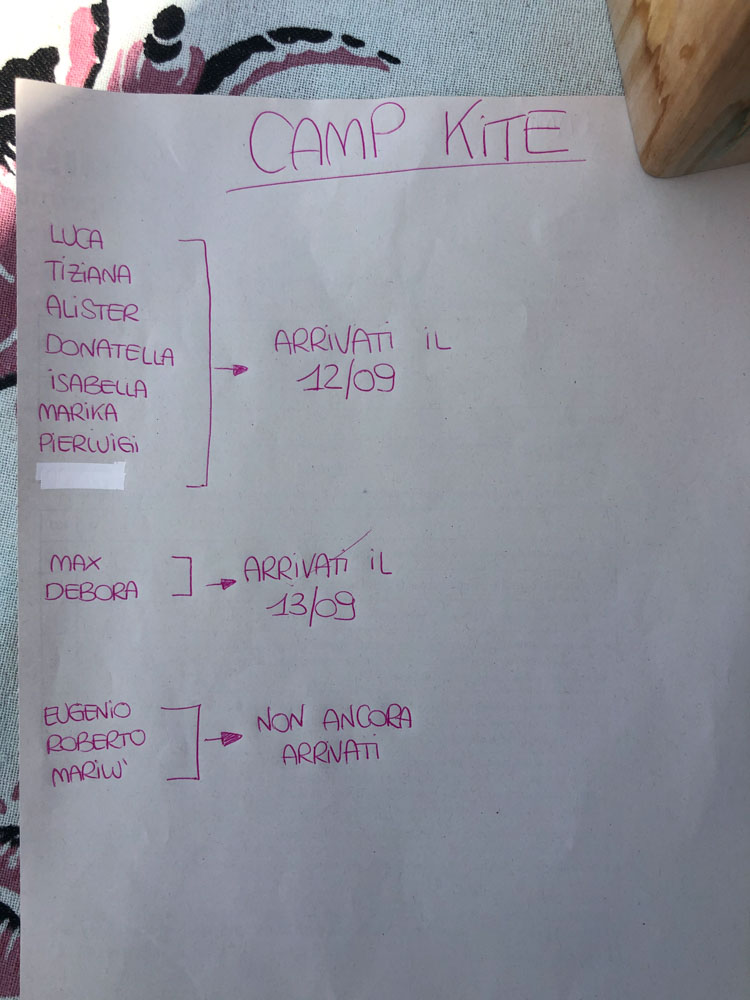 CAMP KITE
LUCA
TIZIANA
ALISTER
DONATELLA
ISABELLA
MARIKA
PIERLUIGI
ARRIVATI IL
12/09
MAX
DEBORA
ARRIVATI IL
13/09
EUGENIO
ROBERTO
MARILU'
NON ANCORA
ARRIVATI